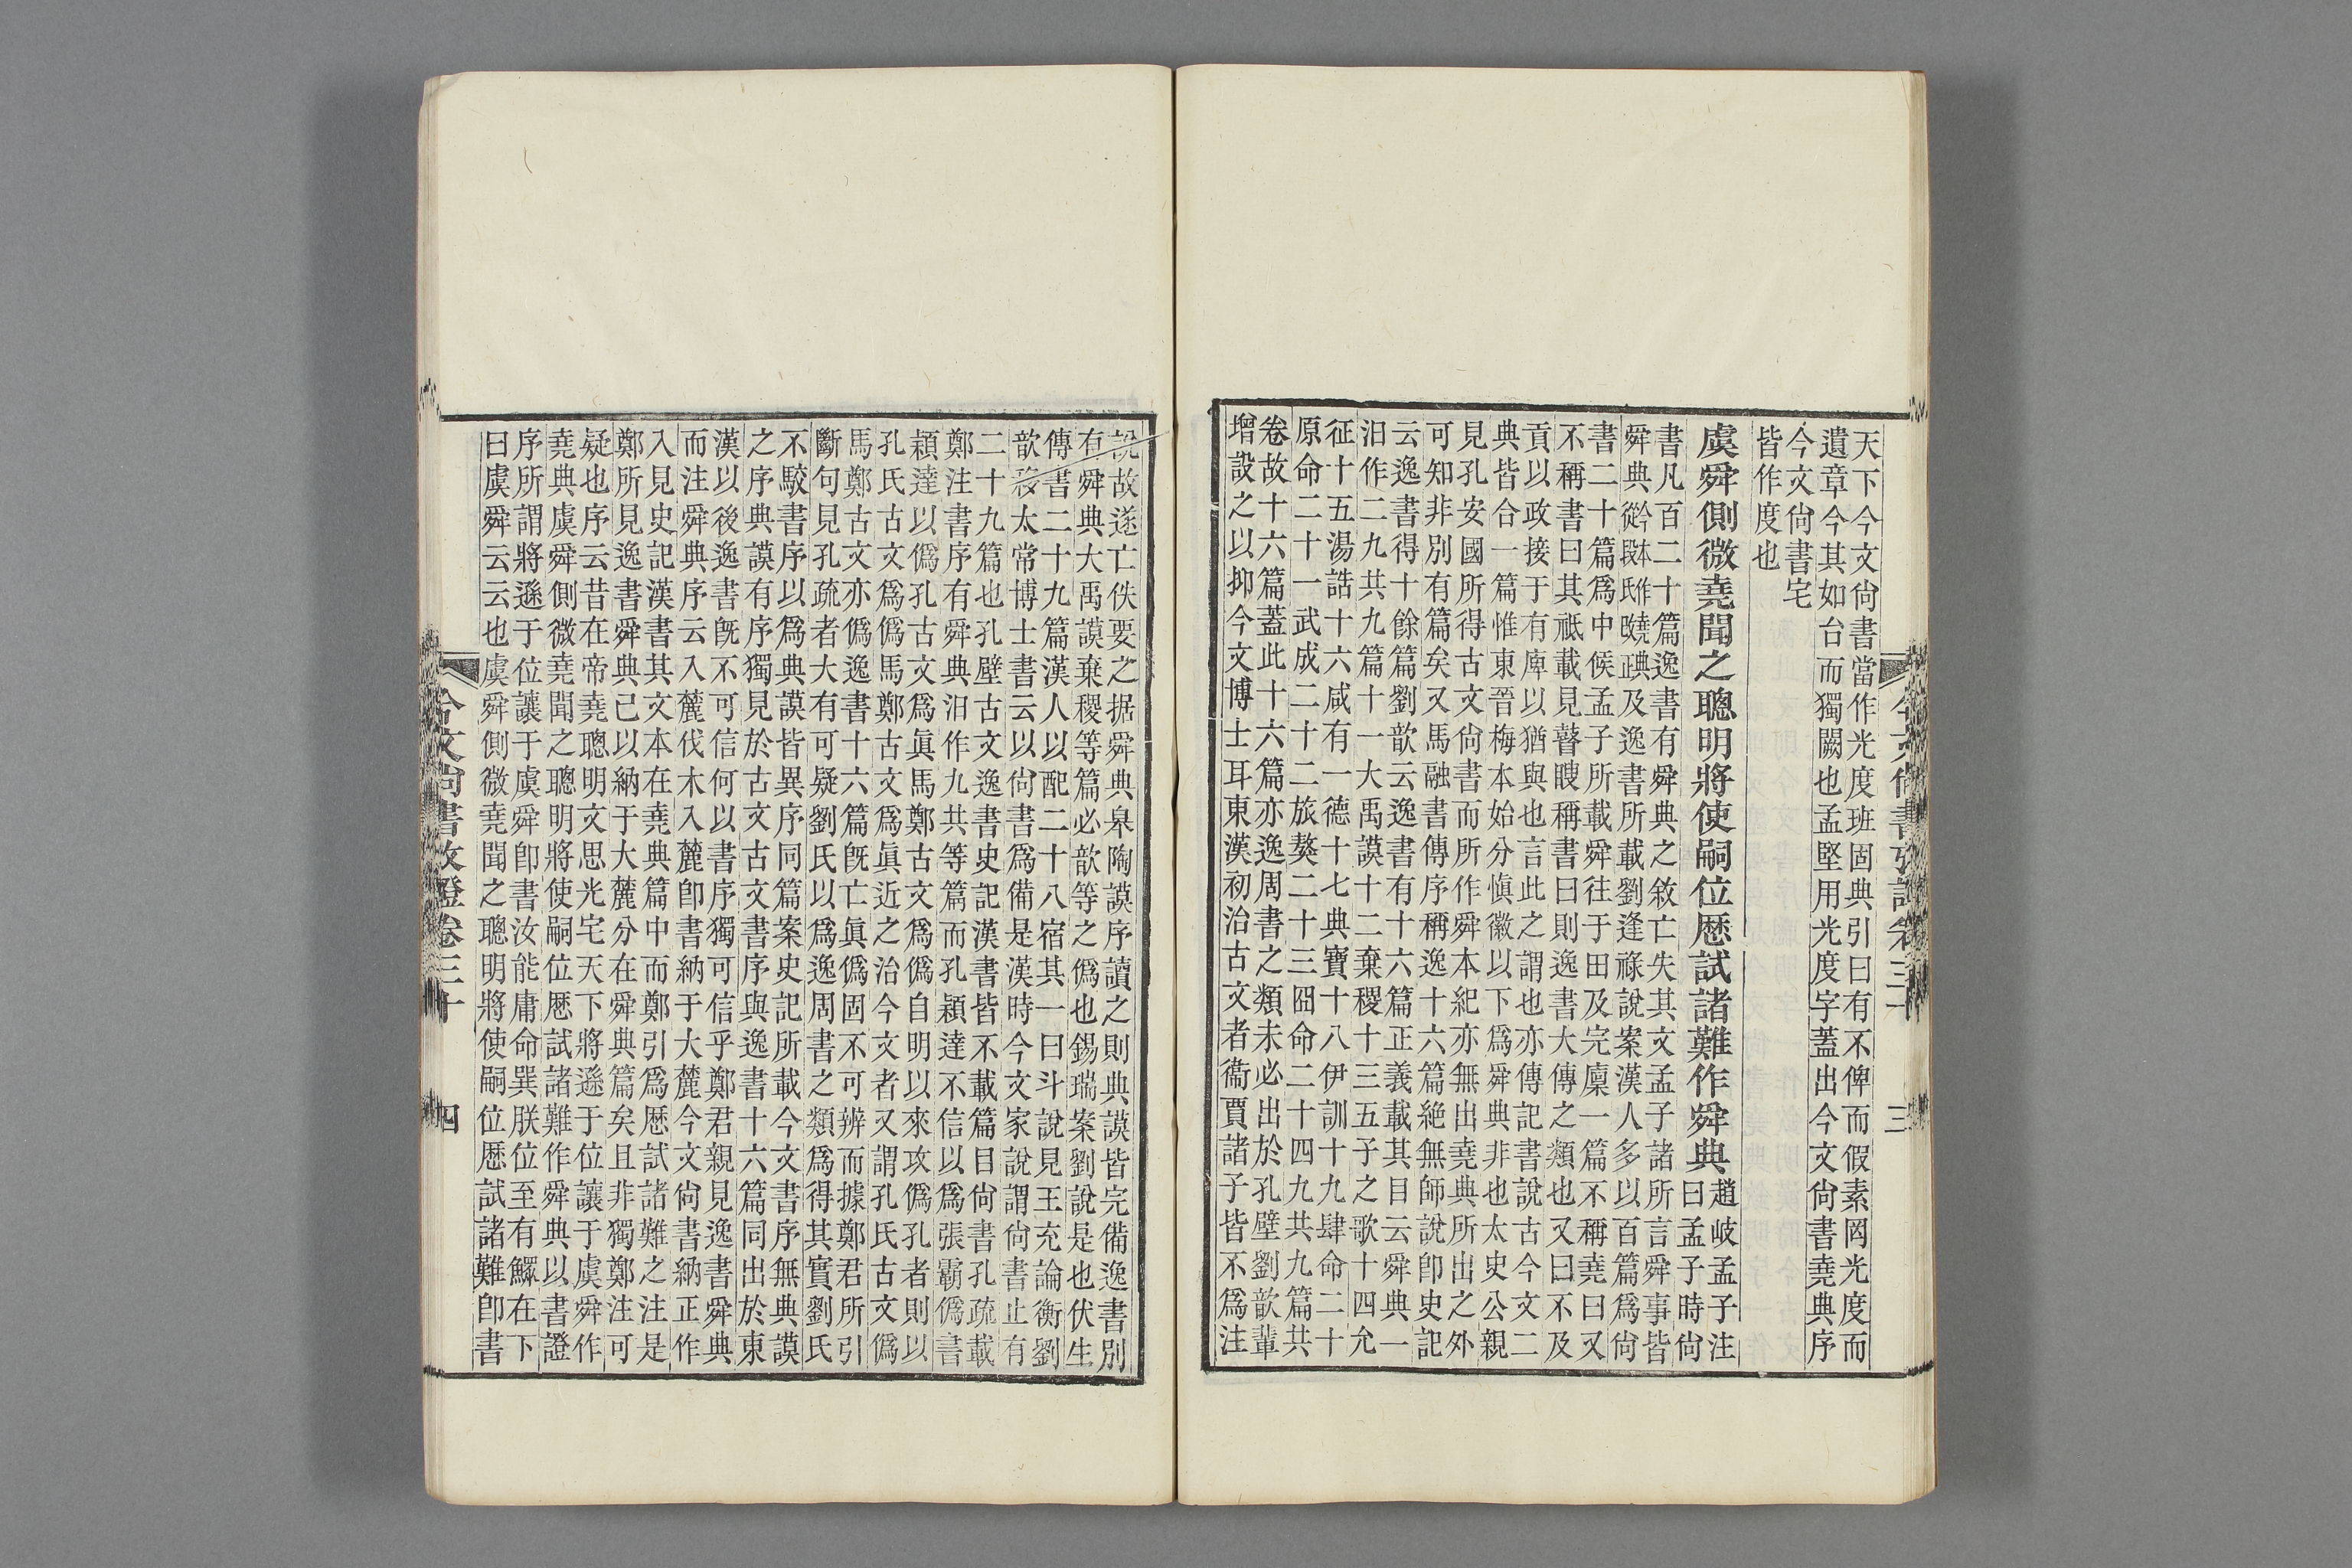 天下今文尙書當作光度班固典引曰有不俾而假素罔光度而
遺章今其如台而獨闕也孟堅用光度字蓋出今文尙書堯典序
今文尙書宅
皆作度也
虞舜側微堯聞之聰明將使嗣位歷試諸難作舜典
趙岐孟子注
曰孟子時尙
書凡百二十篇逸書有舜典之敘亡失其文孟子諸所言舜事皆
舜典及逸書所載劉逢祿說案漢人多以百篇爲尙
書二十篇爲中候孟子所載舜往于田及完廩一篇不稱堯曰又
不稱書曰其祗載見瞽瞍稱書曰則逸書大傳之類也又曰不及
貢以政接于有庳以猶與也言此之謂也亦傳記書說古今文二
典皆合一篇惟東晉梅本始分愼徽以下爲舜典非也太史公親
見孔安國所得古文尙書而所作舜本紀亦無出堯典所出之外
可知非別有篇矣又馬融書傳序稱逸十六篇絶無師說卽史記
云逸書得十餘篇劉歆云逸書有十六篇正義載其目云舜典一
汩作二九共九篇十一大禹謨十二棄稷十三五子之歌十四允
征十五湯誥十六咸有一德十七典寶十八伊訓十九肆命二十
原命二十一武成二十二旅獒二十三冏命二十四九共九篇共
卷故十六篇蓋此十六篇亦逸周書之類未必出於孔壁劉歆輩
增設之以抑今文博士耳東漢初治古文者衞賈諸子皆不爲注
三
說故遂亡佚要之据舜典臯陶謨序讀之則典謨皆完備逸書別
有舜典大禹謨棄稷等篇必歆等之僞也錫瑞案劉說是也伏生
傳書二十九篇漢人以配二十八宿其一曰斗說見王充論衡劉
歆移太常博士書云以尙書爲備是漢時今文家說謂尙書止有
二十九篇也孔壁古文逸書史記漢書皆不載篇目尙書孔疏載
鄭注書序有舜典汩作九共等篇而孔穎達不信以爲張霸僞書
穎達以僞孔古文爲眞馬鄭古文爲僞自明以來攻僞孔者則以
孔氏古文爲僞馬鄭古文爲眞近之治今文者又謂孔氏古文僞
馬鄭古文亦僞逸書十六篇旣亡眞僞固不可辨而據鄭君所引
斷句見孔疏者大有可疑劉氏以爲逸周書之類爲得其實劉氏
不駮書序以爲典謨皆異序同篇案史記所載今文書序無典謨
之序典謨有序獨見於古文古文書序與逸書十六篇同出於東
漢以後逸書旣不可信何以書序獨可信乎鄭君親見逸書舜典
而注舜典序云入麓伐木入麓卽書納于大麓今文尙書納正作
入見史記漢書其文本在堯典篇中而鄭引爲歷試諸難之注是
鄭所見逸書舜典己以納于大麓分在舜典篇矣且非獨鄭注可
疑也序云昔在帝堯聰明文思光宅天下將遜于位讓于虞舜作
堯典虞舜側微堯聞之聰明將使嗣位歷試諸難作舜典以書證
序所謂將遜于位讓于虞舜卽書汝能庸命巽朕位至有鰥在下
曰虞舜云云也虞舜側微堯聞之聰明將使嗣位歷試諸難卽書
今文尙書攷證卷三十
四